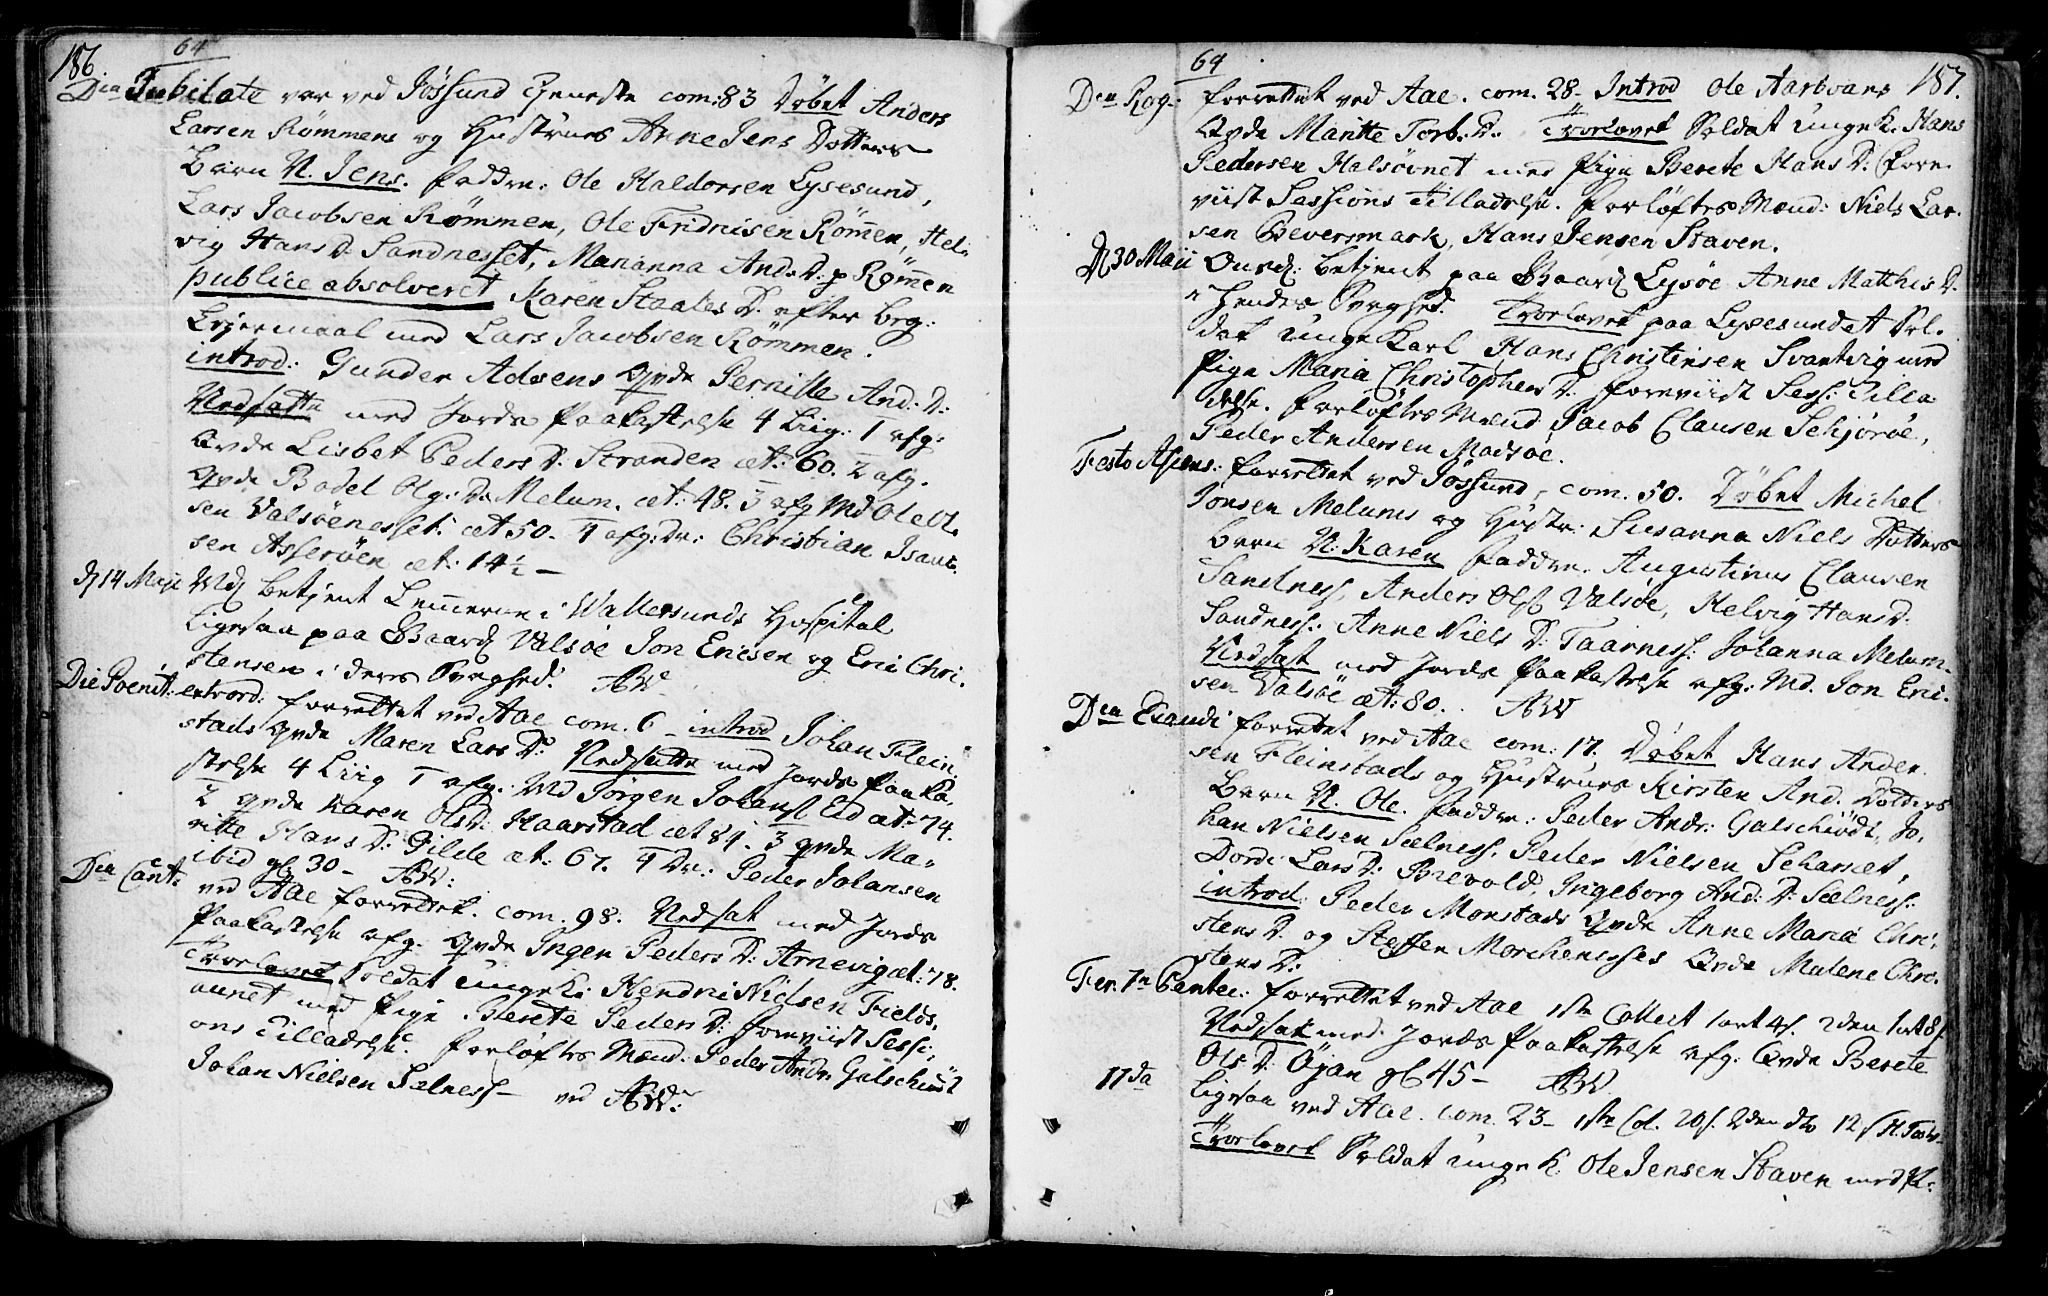 186.
64
Dca Jubilate var ved Jössund Tjeneste com: 83 Döbet Anders
Larsen Römmens og Hustrues Anne Jens Dotters
Barn N. Jens. Faddre: Ole Haldorsen Lysesund,
Lars Jacobsen Römmen, Ole Fridrisen Römen, Hel-
vig Hans D: Sandnesset, Marianna And: D: p Römen
publice absolveret Karen Staales D: efter beg:
Lejermaal med Lars Jacobsen Römmen.
introd: Gunder Adsens Qvde Pernille And: D:
Nedsatte med Jords Paakastelse 4 Liig: 1 afg:
Qvde Lisbet Peders D: Stranden æt: 60. 2 afg.
Qvde Bodel Olg: D: Melum. æt: 48. 3 afg Md Ole Ol
sen Valsöenesset: æt 50. 4 afg: Dr: Christian Isaac
sen Asseröen æt: 14½ —
d 14 Maji Md betjent Lemmerne i Wallersunds Hospital
Ligesaa paa Valsöe Jon Ericsen og Eric Chri-
stensen i deres Svaghed: AW
Die Poenit: extrord: forrettet ved Aae com. 6 — introd Johan Flein
stads Qvde Maren Lars D: Nedsatte med Jords Paaka-
stelse 4 Liig 1 afg. Md Jörgen Johans Eid æt: 74.
2 Qvde Karen Ols D: Haarstad æt 81. 3 Qvde Ma-
ritte Hans D: Gilde æt: 67. 4 Dr: Peder Johansen
ibid gl 30 — AW:
Dca Cant: ved Aae forrettet. com. 98. Nedsat med Jords
Paakastelse afg. Qvde Ingen Peders D: Arnevig æt: 78.
Trolovet Soldat unge K: Hendric Nielsen Fields-
aunet med Pige Berete Peders D: foreviist Sessi-
ons Tilladelse. Forlöftes Mænd: Peder Andr: Galschiödt
Johan Nielsen Sælness — ved AW:
64
187.
Dca Rog: forrettet ved Aae. com. 28. Introd Ole Aarvoans
Qvde Maritte Torb: D. Trolovet Soldat unge K. Hans
Pedersen Halsövnet med Pige Berete Hans D: fore
viist Sessions Tilladelse. Forlöftes Mænd: Niels Lar-
sen Beversmark, Hans Jensen Staven.
D 30 Maji betjent paa Lysöe Anne Matthis D.
i hendes Svaghed. Trolovet paa Lysesundet Sol-
dat Unge Karl Hans Christensen Svantvig med
Pige Maria Christophers D: foreviidt Sess: Tilla
delse. Forlöftes Mænd Jacob Clausen Schjöröe,
Peder Andersen Madsöe.
Festo Ascens: forrettet ved Jössund, com. 50. Döbet Michel
Jonsen Melums og Hustr: Susanna Niels Dotters
barn N: Karen Faddre. Augustinus Clausen
Sandness, Anders Ols Valsöe, Helvig Hans D:
Sandness: Anne Niels D: Taarness: Johanna Melum.
Nedsat med Jords Paakastelse afg: Md. Jon Eric-
sen Valsöe æt: 80. AW
Dca Exaudi forrettet ved Aae com: 17. Döbet Hans Ander
sen Fleinstads og Hustrues Kirsten And. Dotters
Barn N. Ole. Faddre: Peder Andr: Galschiödt, Jo-
han Nielsen Sælness. Peder Nielsen Schamet,
Dorde Lars D: Brevold, Ingeborg And: D: Sælness:
introd. Peder Monstads Qvde Anne Maria Chri-
stens D. og Steffen Morchenesses Qvde Malene Chri-
stens D:
Fer. 1n Pentec: forrettet ved Aae 1ste Collect 1 ort 4s. 2den 1 ort 8s.
Nedsat med Jords Paakastelse afg. Qvde Berete
Ols D: Öjan gl 45 — AW.
11da Ligesaa ved Aae. com. 23 — 1ste Col. 20s. 2den dto 12s
Trolovet Soldat unge K: Ole Jensen Staven med P: